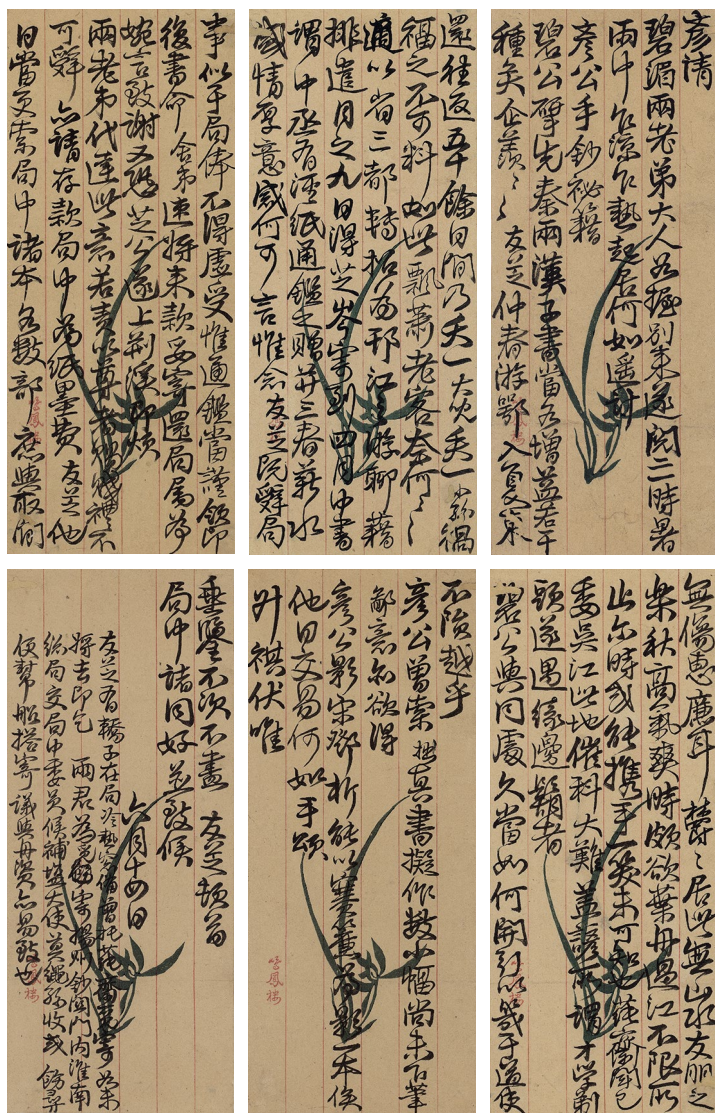 彥清
碧湄兩老弟大人如握別來遂閱二時暑
雨中乍涼乍熱起居何如遙
彥公手鈔祕籍
碧公孽先秦兩漢子書當各增益若干
種矣企羨〻〻友芝仲春游鄂入夏
還往返五千餘日間乃夭一女夭一孫禍
福之不可料如此飄蕭老客奈何〻〻
適以省三都轉招為邗江之游聊藉
排遣月之九日得芝岑寄到四月中書
謂中丞有涇紙通鑑之贈并三春薪水
盛情厚意感何可言惟念友芝既辭局
事似于局俸不得虛受惟通鑑當謹領即
後書命舍弟速將來款妥寄還局屬為
婉言致謝又恐芝公遂上荊溪
兩老弟代達此意若責以尊者不
可辭亦請存款局中為紙墨費友芝他
日當更索局中諸本各數部應與取
無傷惠廉耳鬱〻居此無山水友朋之
樂秋高氣爽時頗欲葉舟過江不限所
止亦時或能攜手一笑未可知也
委吳江此地催科大難蓋諺所謂才學剃
頭遂遇緣邊鬍者
碧公與同處久當如何開引以幾于道使
不隕越乎
彥公曾索拙真書擬作數小幅尚未下筆
鄙意亦欲得
彥公影宋能以塞否兼為影一本俟
他日交易何如手頌
升祺伏唯
垂鑒不次不盡 友芝頓首
局中諸同好並致候
六月十四日
友芝有轎子在局
將去即乞 兩君為寄揚州鈔關門內淮南
總局交局中委員候補鹽大使莫繩孫收或
便幫船搭寄議與舟資亦易致也